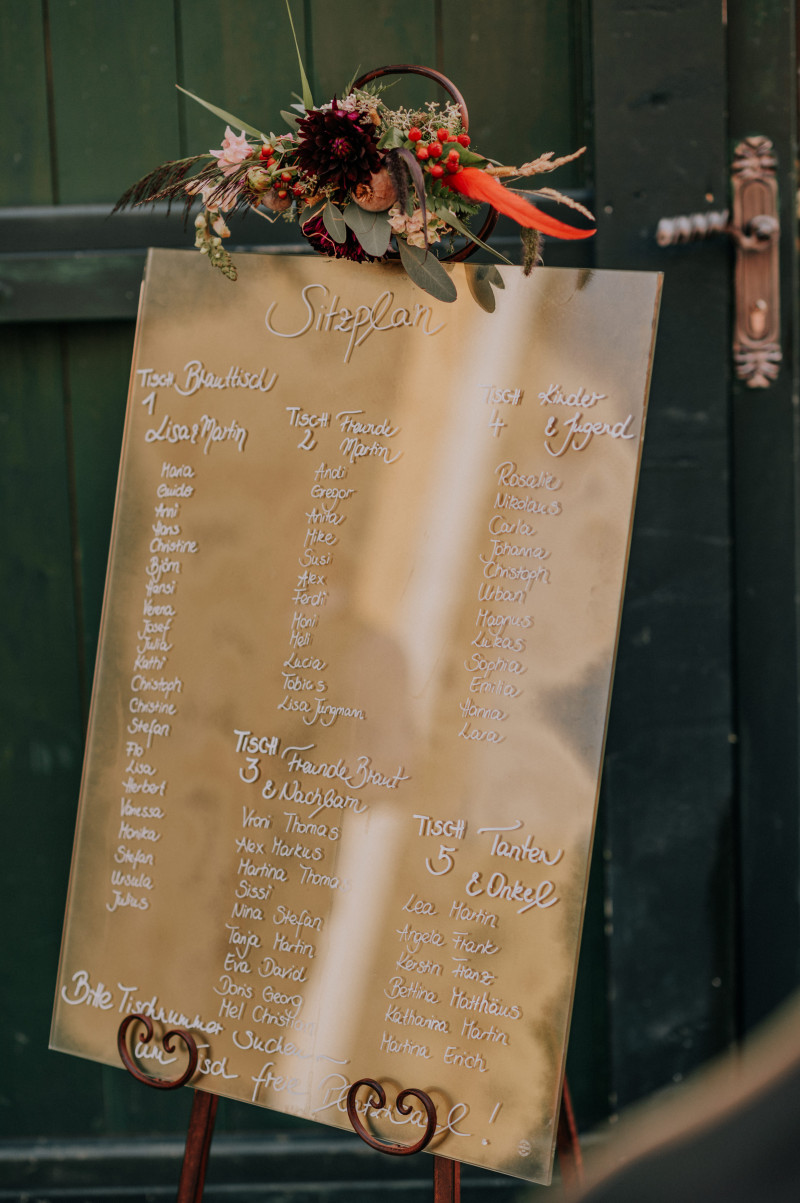 Sitzplan
Tisch Brauttisch
1
Lisa & Martin
Maria
Guido
Anni
Hans
Christine
Björn
Hansi
Verena
Josef
Julia
Kathi
Christoph
Christine
Stefan
Flo
Lisa
Herbert
Vanessa
Monika
Stefan
Ursula
Julius
Tisch Freunde
2 Martin
Andi
Gregor
Anita
Mike
Susi
Alex
Ferdi
Moni
Meli
Lucia
Tobias
Lisa Jungmann
Tisch Freunde Braut
3 & Nachbarn
Vroni Thomas
Alex Markus
Martina Thomas
Sissi
Nina Stefan
Tanja Martin
Eva David
Doris Georg
Mel Christian
Tisch Kinder
4 & Jugend
Rosalie
Nikolaus
Carla
Johanna
Christoph
Urban
Magnus
Lukas
Sophia
Emilia
Hanna
Lara
Tisch Tanten
5 & Onkel
Lea Martin
Angela Frank
Kerstin Franz
Bettina Matthäus
Katharina Martin
Martina Erich
Bitte Tischnummer suchen
am Tisch freie Platzwahl!